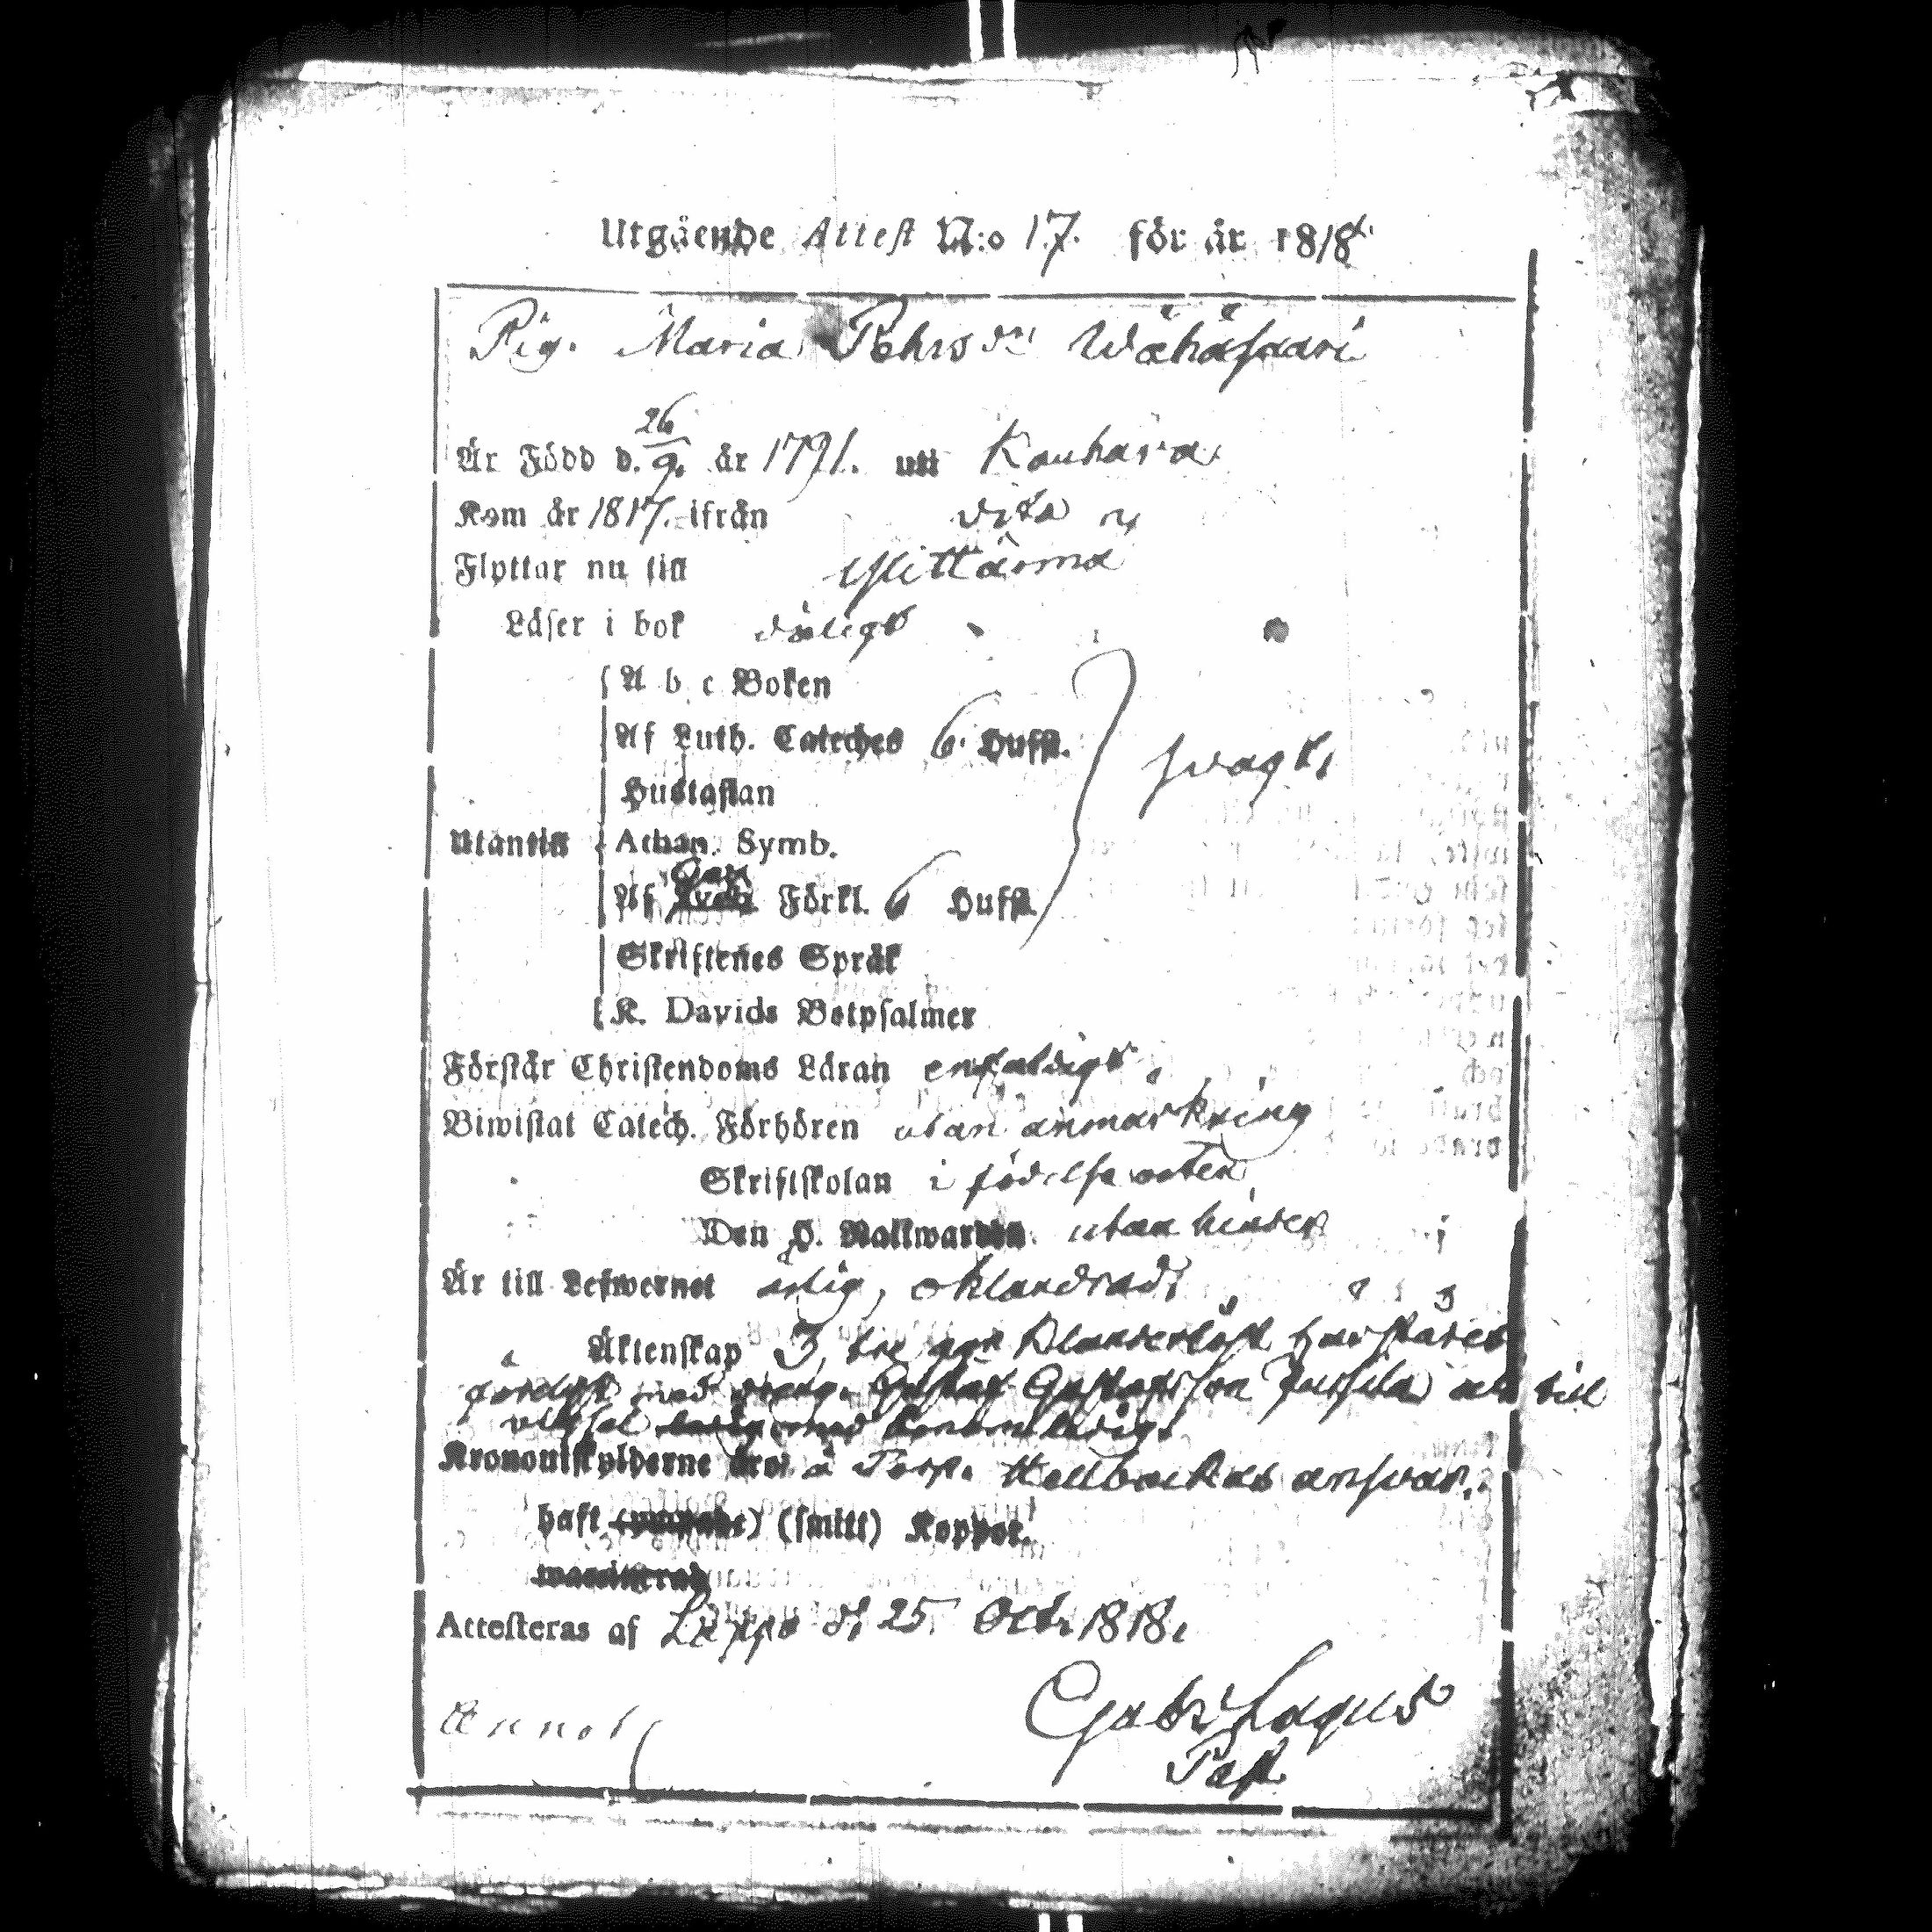 Utgående Attest N:o 17. för år 1818.
Pig. Maria Pehrsdr Wähäsaari
Är Född d. 26/9. år 1791. uti Kauhava
Kom år 1817. ifrån dito
Flyttar nu till Ylittärma
Läser i bok dåligt
A b c Boken
Af Luth. Cateches 6. Hufst. swagt,
Hustaflan
Utantill Athan. Symb.
Af Förkl. 6 Hufst.
Skriftenes Språk
K. Davids Botpsalmer
Förstår Christendoms Läran enfaldigt.
Biwistat Catech. Förhören utan anmärkning
Skriftskolan i födelse orten
Den H. Nattwarden utan hinder
Är till Lefwernet ärlig, oklandrad,
Äktenskap 3, tre ggr
med Gustaf Gustafsson till
Kronoutskylderne äro å Torp. ansvar.
haft (smitt) Koppor.
Attesteras af Lappo d. 25. Octr 1818.
Gabr Lagus
Past.